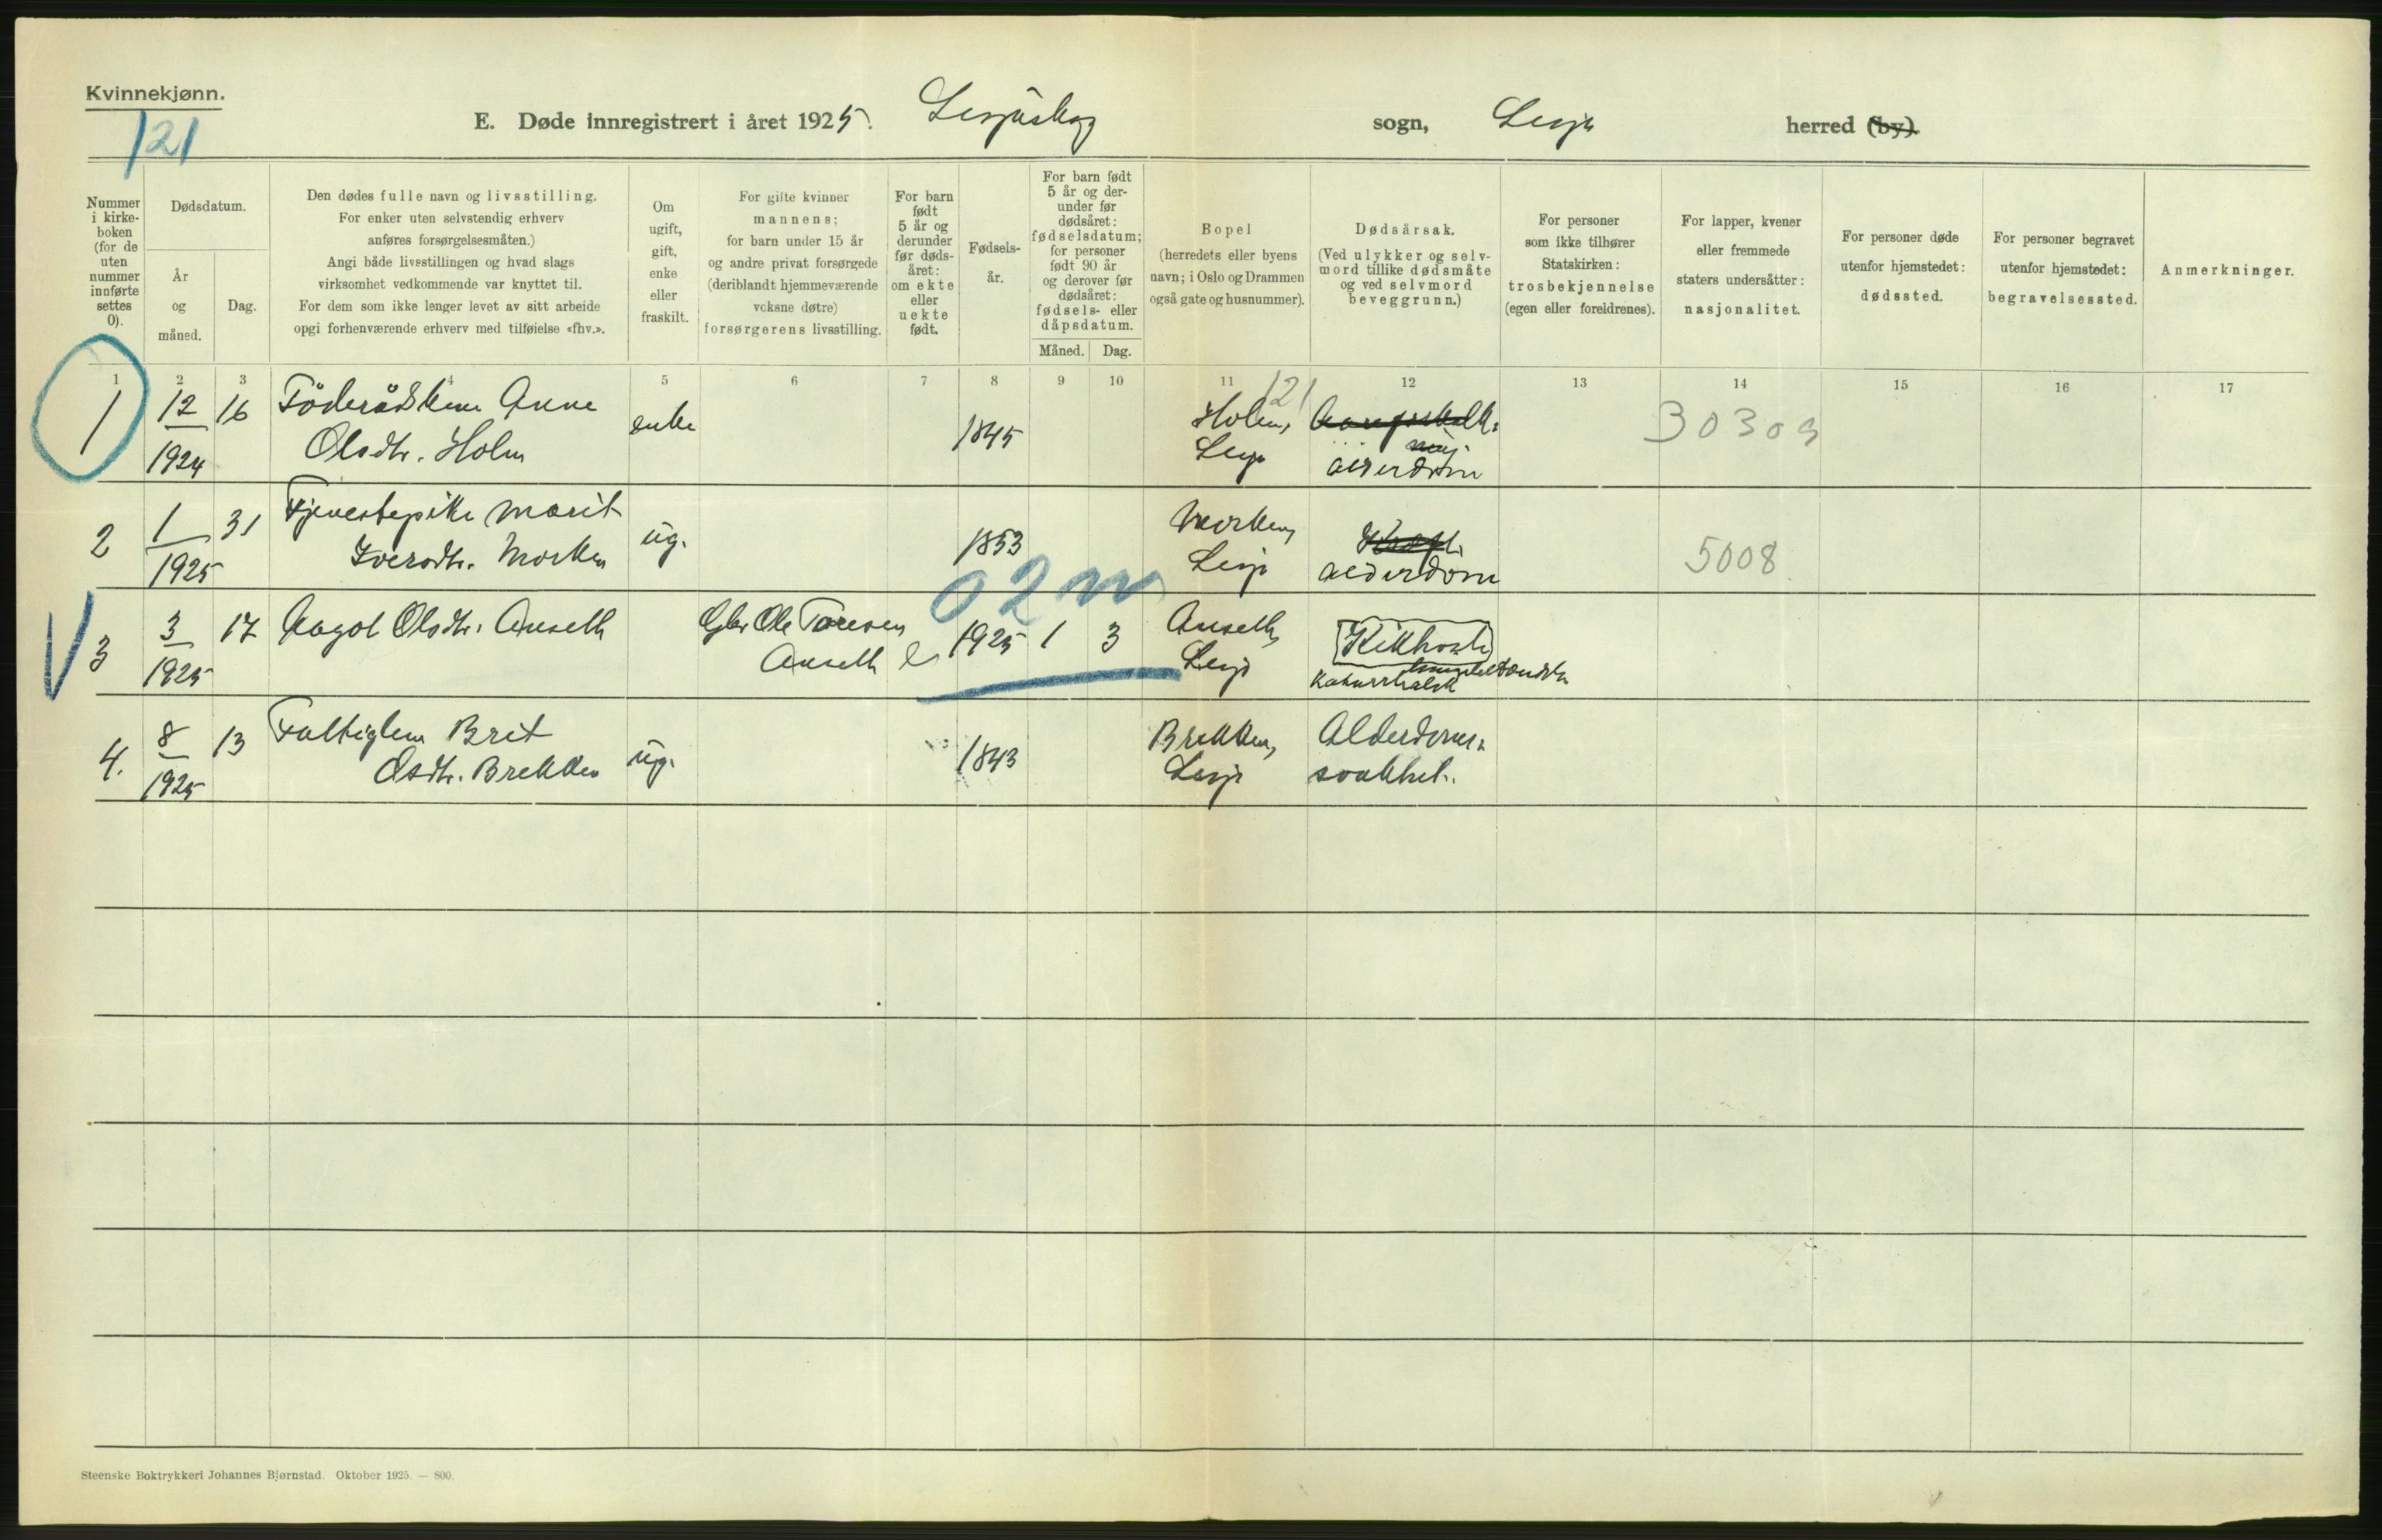 Kvinnekjønn.
121
E. Døde innregistrert i året 1925. Lesjaskog sogn, Lesja herred (by).
Nummer i kirke-boken (for de uten nummer innførte settes 0).
Dødsdatum.
År og måned.
Dag.
Den dødes fulle navn og livsstilling.
For enker uten selvstendig erhverv
anføres forsørgelsesmåten.)
Angi både livsstillingen og hvad slags
virksomhet vedkommende var knyttet til.
For dem som ikke lenger levet av sitt arbeide
opgi forhenværende erhverv med tilføielse «fhv.».
Om
ugift,
gift,
enke
eller
fraskilt.
For gifte kvinner
mannens;
for barn under 15 år
og andre privat forsørgede
(deriblandt hjemmeværende
voksne døtre)
forsørgerens livsstilling.
For barn
født
5 år og
derunder
før døds-
året:
om ekte
eller
uekte
født.
Fødsels-
år.
For barn født
5 år og der-
under før
dødsåret:
fødselsdatum;
for personer
født 90 år
og derover før
dødsåret:
fødsels- eller
dåpsdatum.
Måned. Dag.
Bopel
(herredets eller byens
navn; i Oslo og Drammen
også gate og husnummer).
Dødsårsak.
(Ved ulykker og selv-
mord tillike dødsmåte
og ved selvmord
beveggrunn.)
For personer
som ikke tilhører
Statskirken:
trosbekjennelse
(egen eller foreldrenes).
For lapper, kvener
eller fremmede
staters undersåtter:
nasjonalitet.
For personer døde
utenfor hjemstedet:
dødssted.
For personer begravet
utenfor hjemstedet:
begravelsessted.
Anmerkninger.
1 2 3 4 5 6 7 8 9 10 11 12 13 14 15 16 17
1 12 16 Föderådskone Anne enke 1845 Holen, 121 30309
1924 Olsdtr. Holm Lesja alderdom
2 1 31 Tjenestepike Marit ug. 1853 Morken, 5008
1925 Iversdtr. Morken Lesja alderdom
02
3 3 17 Aagot Olsdtr. Anseth Gbr. Ole Toresen 1925 1 3 Anseth, Kikhoste
1925 Anseth e Lesja
Katarrhalsk
4. 8 13 Fattiglem Brit ug. 1843 Brekken, Alderdoms-
1925 Olsdtr. Brekken Lesja svakhet.
Steenske Boktrykkeri Johannes Bjørnstad. Oktober 1925. — 800.